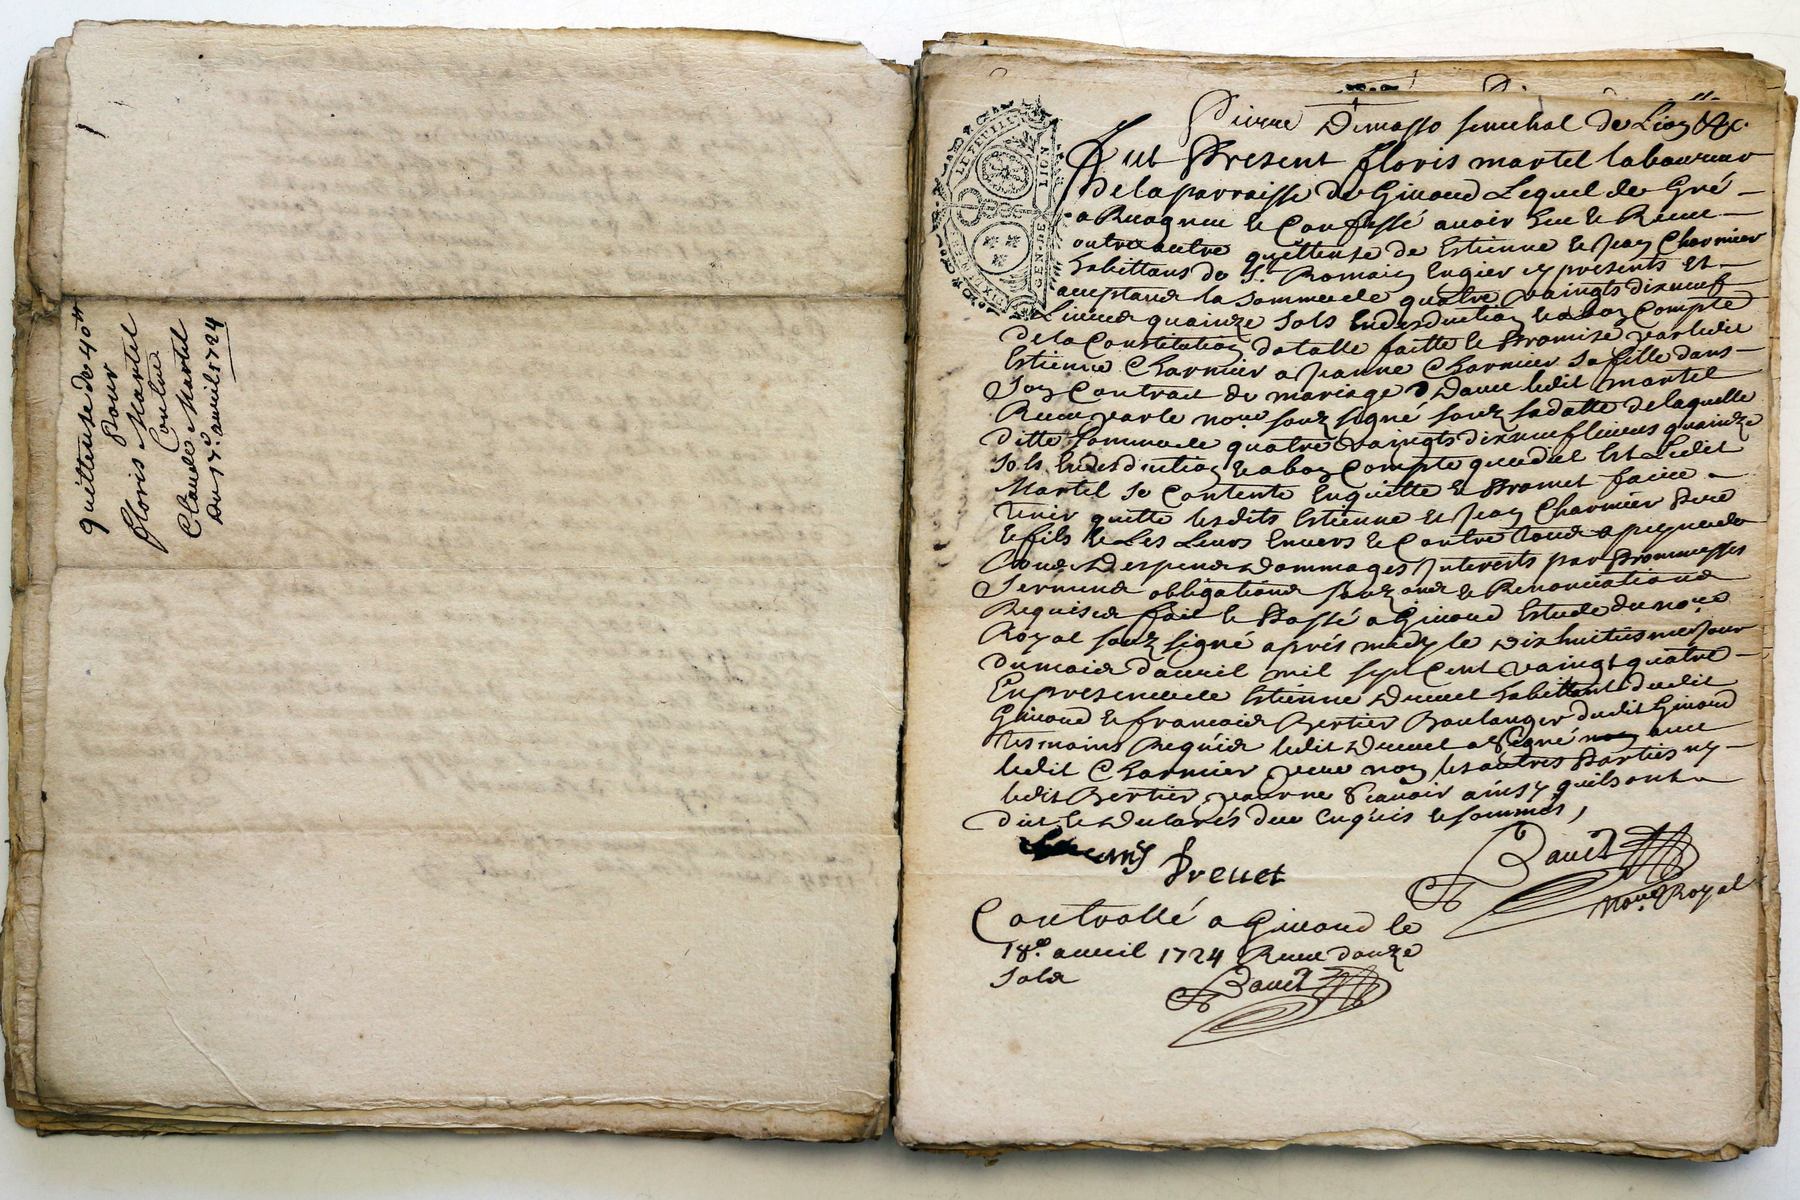 quittense de 40ᵗᵗ
pour
floris Martel
Contre
Claude Martel
Du 17ᵉ. avril 1724
LE FEUILL
GEN. DE LION
SIX
Pierre Dimasso senechal de Lion &c.
Fut Present floris martel laboureur
de la parroisse de Givord Lequel de Gré
a Reconneu et Confessé avoir heu et Receu
outre autre quittense de Estienne et Jean Charmier
habittans de St. Romain Engier cy presents Et
acceptans la Somme de quatre vaingts dixneuf
Livres quainze sols En desduction et a bon Compte
de la Constitution dotalle faitte et Promise par ledit
Estienne Charmier a Jeanne Charmier sa fille dans
son Contrat de mariage d'avec ledit martel
Receu par le noʳᵉ souz signé souz sa datte de laquelle
ditte somme de quatre vaingts dixneuf livres quainze
sols En desduction et a bon Compte que dit Est Ledit
Martel se Contente Enquitte et Promet faire
tenir quitte lesdits Estienne et Jean Charmier Pere
et fils et Les Leurs Envers et Contre tous a peyne de
tous Despens Dommages Interests par Prommesses
Serment obligations et Renonciations
Requises fait et Passé a Givord Estude du noʳᵉ
Royal souz signé aprés midy le Dix huitiesme jour
du mois d'avril mil sept Cent vaingt quatre
En presence de Estienne Drevet habittant dudit
Givord et francois Bertier Boulanger dudit Givord
tesmoins Requis ledit Drevet a signé avec
ledit Charmier pere non les autres Parties ny
ledit Bertier pour ne Scavoir ainsy quils ont
dit et Declarés de ce Enquis et sommés,
Drevet
Bauet
noʳᵉ Royal
Controllé a Givord le
18ᵉ. avril 1724 Receu douze
sols
Bauet